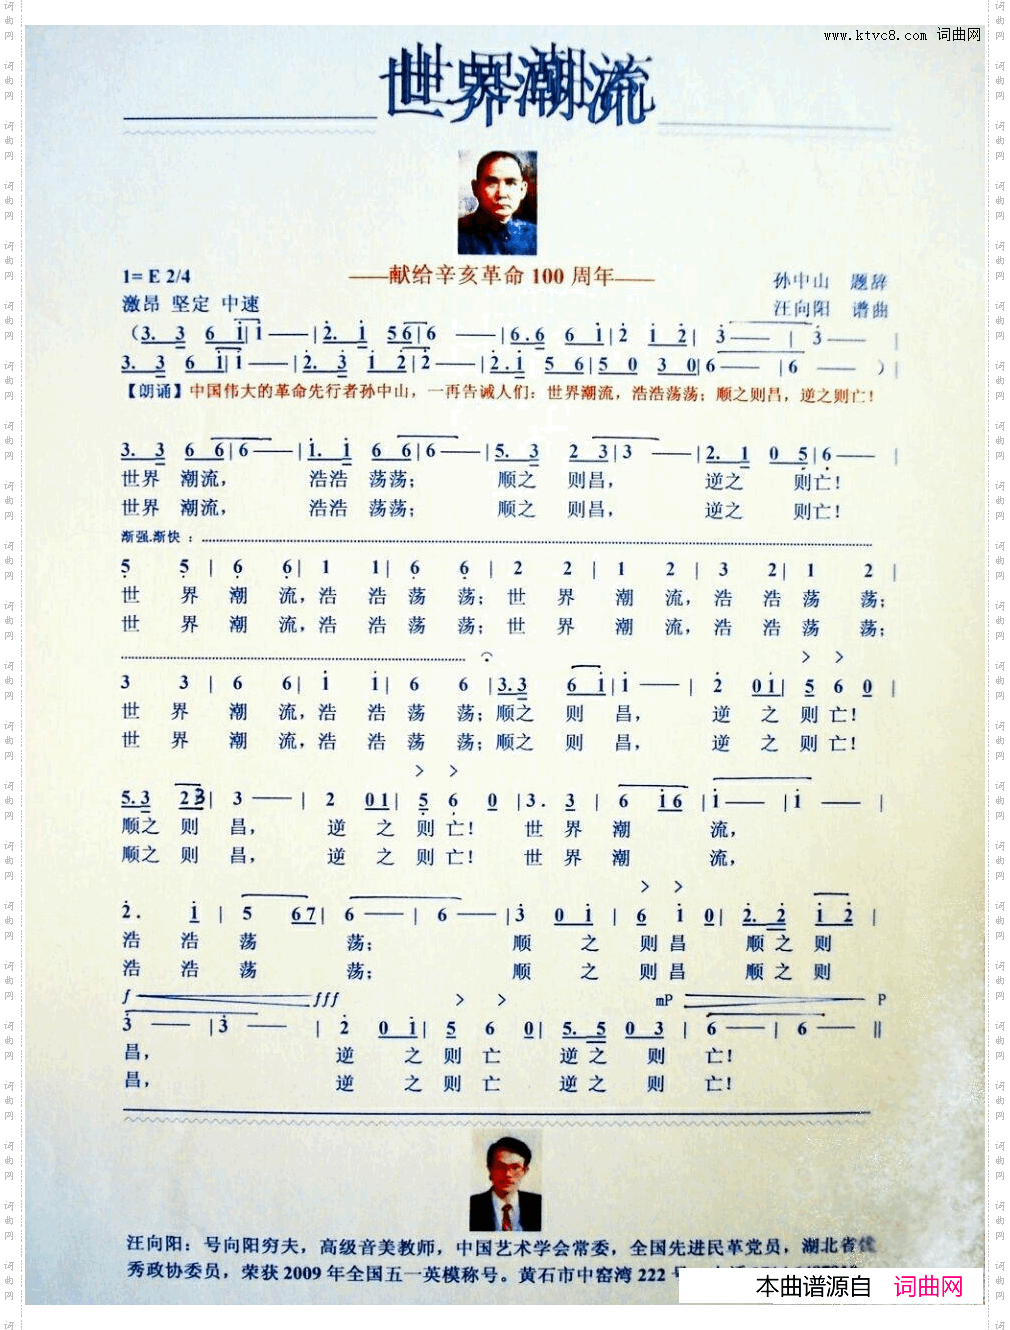 www.ktvc8.com 词曲网
世界潮流
——献给辛亥革命 100 周年——
1= E 2/4
孙中山 题辞
激昂 坚定 中速
汪向阳 谱曲
（3. 3 6 i| i —— | 2. i 5 6 | 6 —— | 6 . 6 6 i | 2 i 2 | 3 —— | 3 —— |
3. 3 6 i | i —— | 2. 3 i 2 | 2 —— | 2 . i 5 6 | 5 0 3 0 | 6 —— | 6 —— ）|
【朗诵】中国伟大的革命先行者孙中山，一再告诫人们：世界潮流，浩浩荡荡；顺之则昌，逆之则亡！
3. 3 6 6 | 6 —— | i. i 6 6 | 6 —— | 5. 3 2 3 | 3 —— | 2. 1 0 5 | 6 —— |
世界 潮流， 浩浩 荡荡； 顺之 则昌， 逆之 则亡！
世界 潮流， 浩浩 荡荡； 顺之 则昌， 逆之 则亡！
渐强.渐快 ：
5 5 | 6 6 | 1 1 | 6 6 | 2 2 | 1 2 | 3 2 | 1 2 |
世 界 潮 流，浩 浩 荡 荡； 世 界 潮 流，浩 浩 荡 荡；
世 界 潮 流，浩 浩 荡 荡； 世 界 潮 流，浩 浩 荡 荡；
> >
3 3 | 6 6 | i i | 6 6 | 3. 3 6 i | i —— | 2 0 i | 5 6 0 |
世 界 潮 流，浩 浩 荡 荡；顺之 则 昌， 逆 之 则 亡！
世 界 潮 流，浩 浩 荡 荡；顺之 则 昌， 逆 之 则 亡！
> >
5. 3 2 3 | 3 —— | 2 0 1 | 5 6 0 | 3 . 3 | 6 i 6 | i —— | i —— |
顺之 则 昌， 逆 之 则 亡！ 世 界 潮 流，
顺之 则 昌， 逆 之 则 亡！ 世 界 潮 流，
> >
2 . i | 5 6 7 | 6 —— | 6 —— | 3 0 i | 6 i 0 | 2. 2 i 2 |
浩 浩 荡 荡； 顺 之 则 昌 顺 之 则
浩 浩 荡 荡； 顺 之 则 昌 顺 之 则
f fff > > mP P
3 —— | 3 —— | 2 0 i | 5 6 0 | 5. 5 0 3 | 6 —— | 6 —— ||
昌， 逆 之 则 亡 逆 之 则 亡！
昌， 逆 之 则 亡 逆 之 则 亡！
汪向阳：号向阳穷夫，高级音美教师，中国艺术学会常委，全国先进民革党员，湖北省优
秀政协委员，荣获 2009 年全国五一英模称号。黄石市中窑湾 222 号
本曲谱源自 词曲网